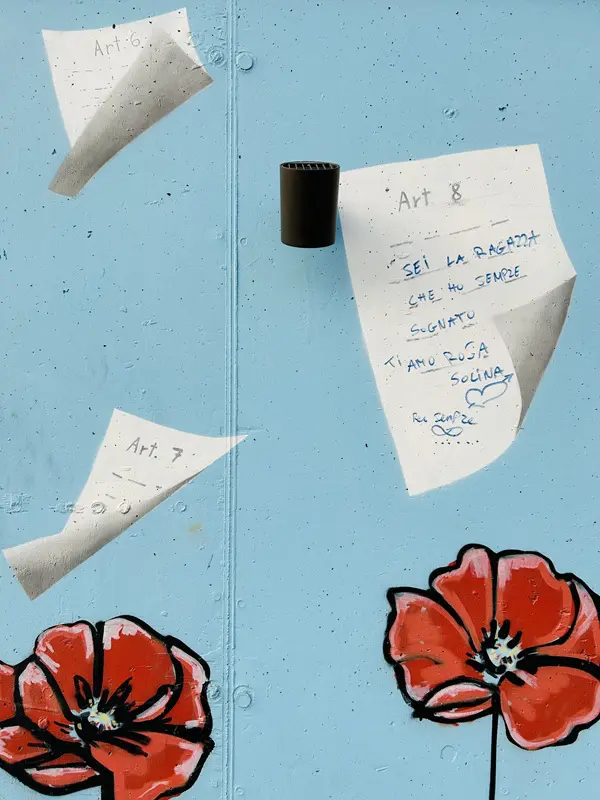 Art. 6
Art 8
SEI LA RAGAZZA
CHE HO SEMPRE
SOGNATO
TI AMO ROSA
SOLINA
Per sempre
Art. 7